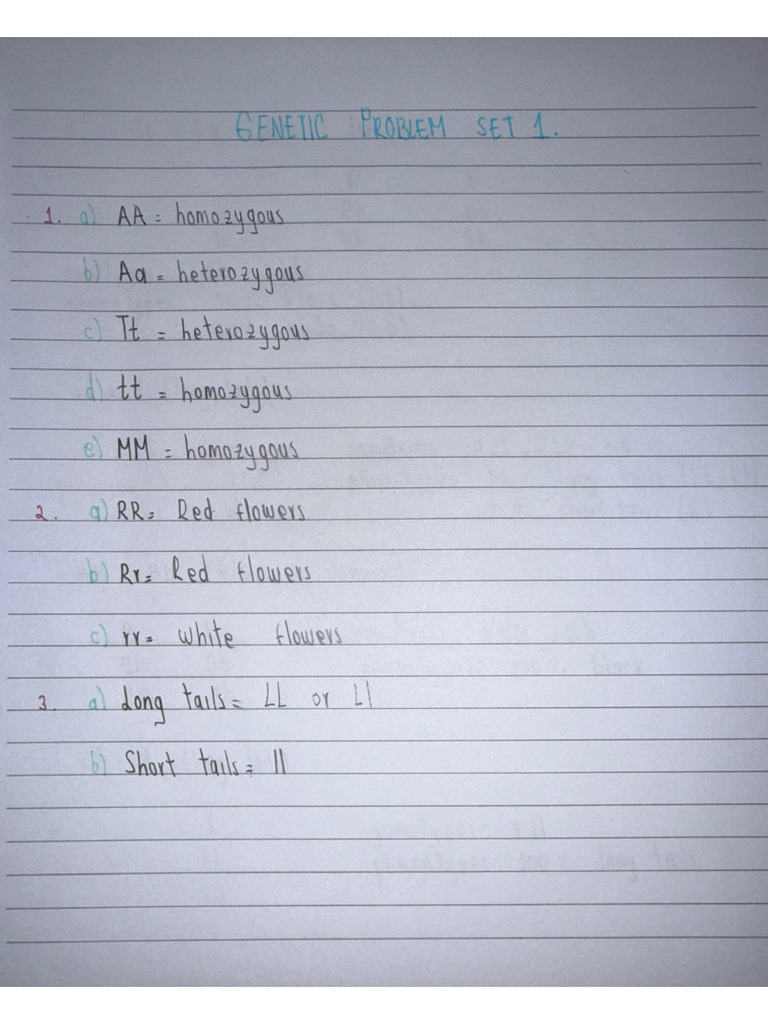 GENETIC PROBLEM SET 1.
1. a) AA = homozygous
b) Aa = heterozygous
c) Tt = heterozygous
d) tt = homozygous
e) MM = homozygous
2. a) RR = Red flowers
b) Rr = Red flowers
c) rr = white flowers
3. a) Long tails = LL or Ll
b) Short tails = ll